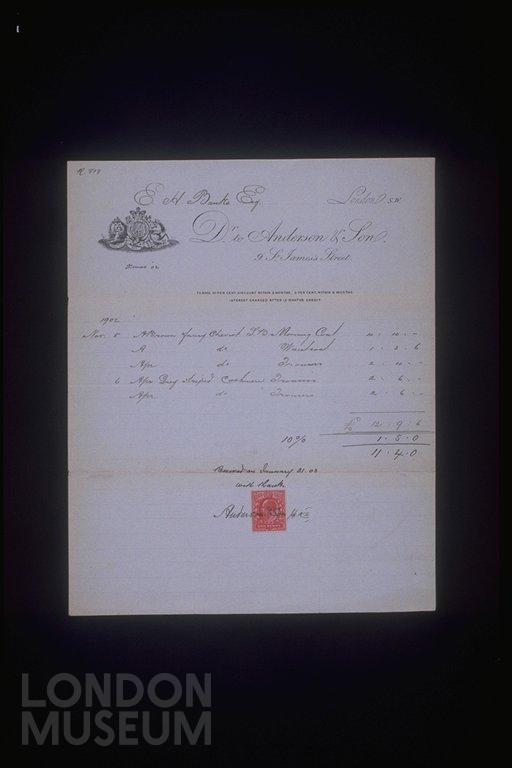 E H Banks Esq.
London S.W.
Dr. to Anderson & Son.
9, St. James's Street.
TERMS, 10 PER CENT. DISCOUNT WITHIN 3 MONTHS, 5 PER CENT. WITHIN 6 MONTHS.
INTEREST CHARGED AFTER 12 MONTHS CREDIT.
1902
Nov. 5 A Brown fancy Cheviot D.B. Morning Coat 4 . 4 . -
A do Waistcoat 1 . 2 . 6
A pr do Trousers 2
6 A pr striped Cashmere Trousers 2 . 6 . -
A pr do Trousers 2 . 6 . -
£ 12 . 9 . 6
10% 1 . 5 . 0
11 . 4 . 0
Received January 21. 03
with thanks
Anderson
LONDON
MUSEUM